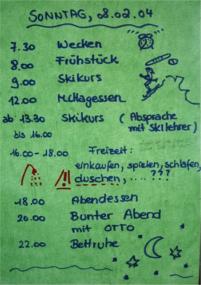 SONNTAG, 08.02.04
7.30 Wecken
8.00 Frühstück
9.00 Skikurs
12.00 Mittagessen
ab 13.30 Skikurs (Absprache
bis 16.00 mit Skilehrer)
16.00 - 18.00 Freizeit:
einkaufen, spielen, schlafen,
duschen, ... ???
18.00 Abendessen
20.00 Bunter Abend
mit OTTO
22.00 Bettruhe